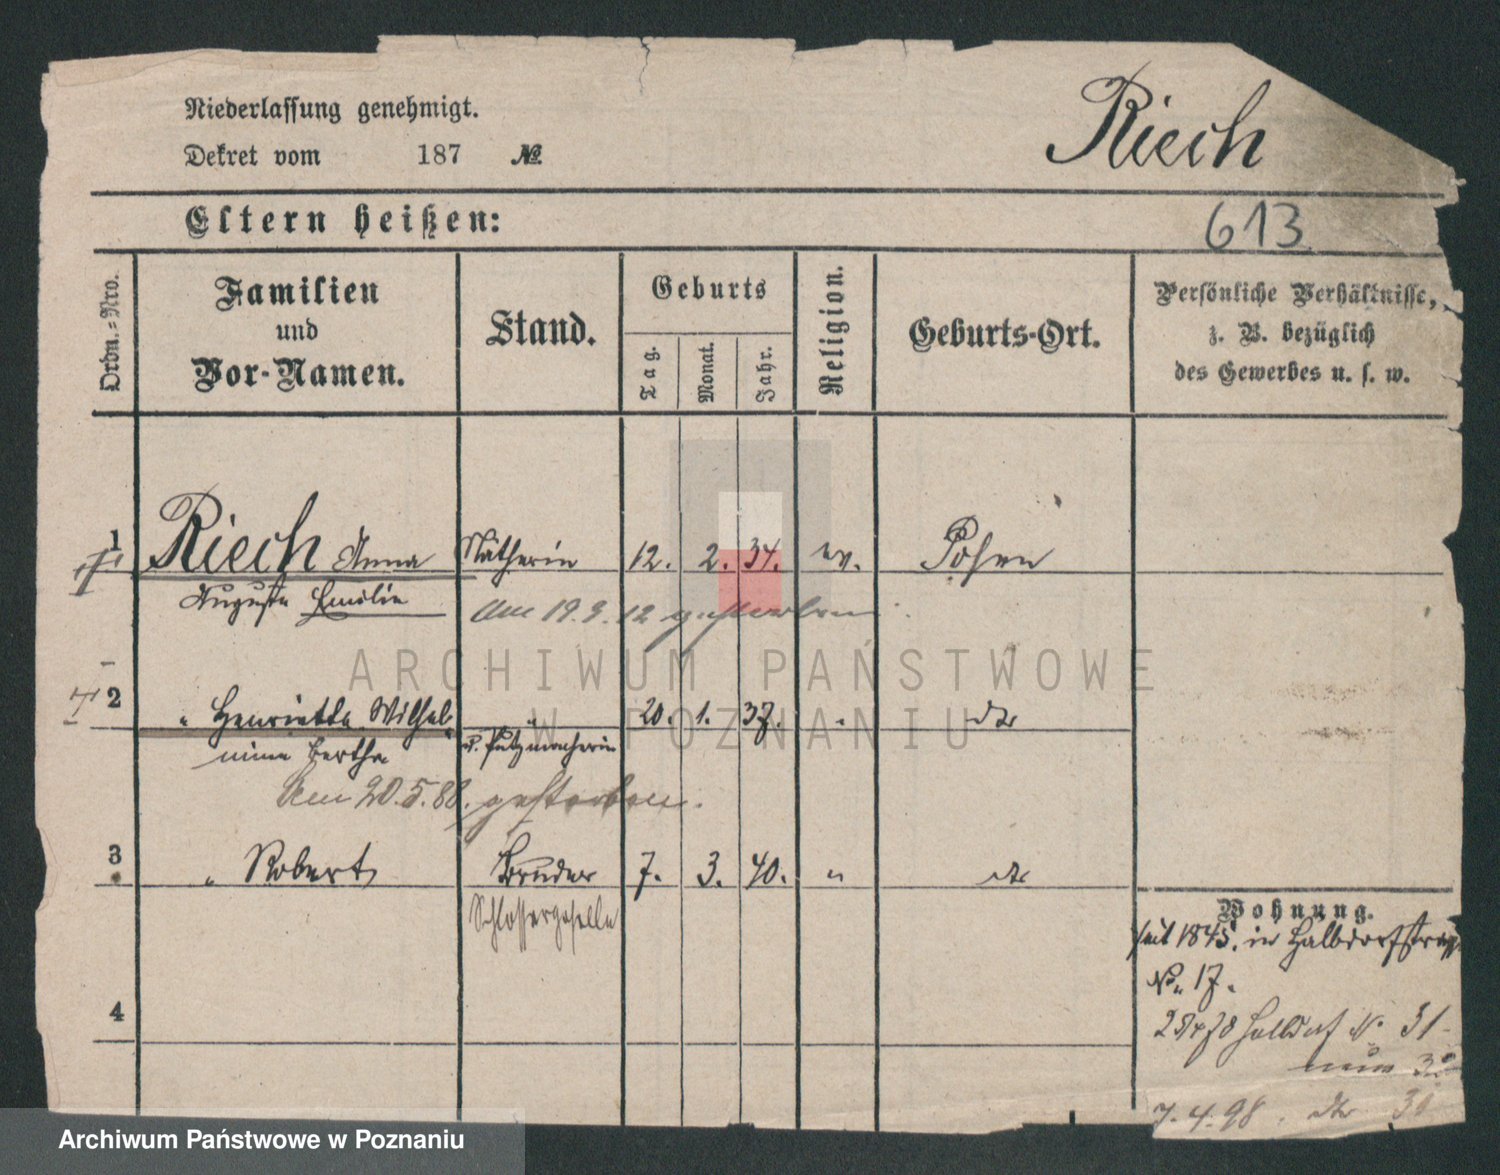 Niederlassung genehmigt.
Riech
Dekret vom 187 №
Eltern heißen:
613
Ordn.=Nro.
Familien
und
Vor-Namen.
Stand.
Geburts
Tag.
Monat.
Jahr.
Religion.
Geburts-Ort.
Persönliche Verhältnisse,
z. B. bezüglich
des Gewerbes u. s. w.
1 Riech Anna Nätherin 12. 2. 34. ev. Posen
Auguste Emilie
am 19.3.12 gestorben.
2 " Henriette Wilhel- " 20. 1. 37. " dto
mine Bertha u. Putzmacherin
Am 20.5.88. gestorben.
3 " Robert Bruder 7. 3. 40. " dto
Schlossergeselle
Wohnung.
seit 1845. in Halbdorfstraße
No. 17.
4
Halbdorf No 31
nun
7.4.98. dto
ARCHIWUM PAŃSTWOWE
W POZNANIU
Archiwum Państwowe w Poznaniu